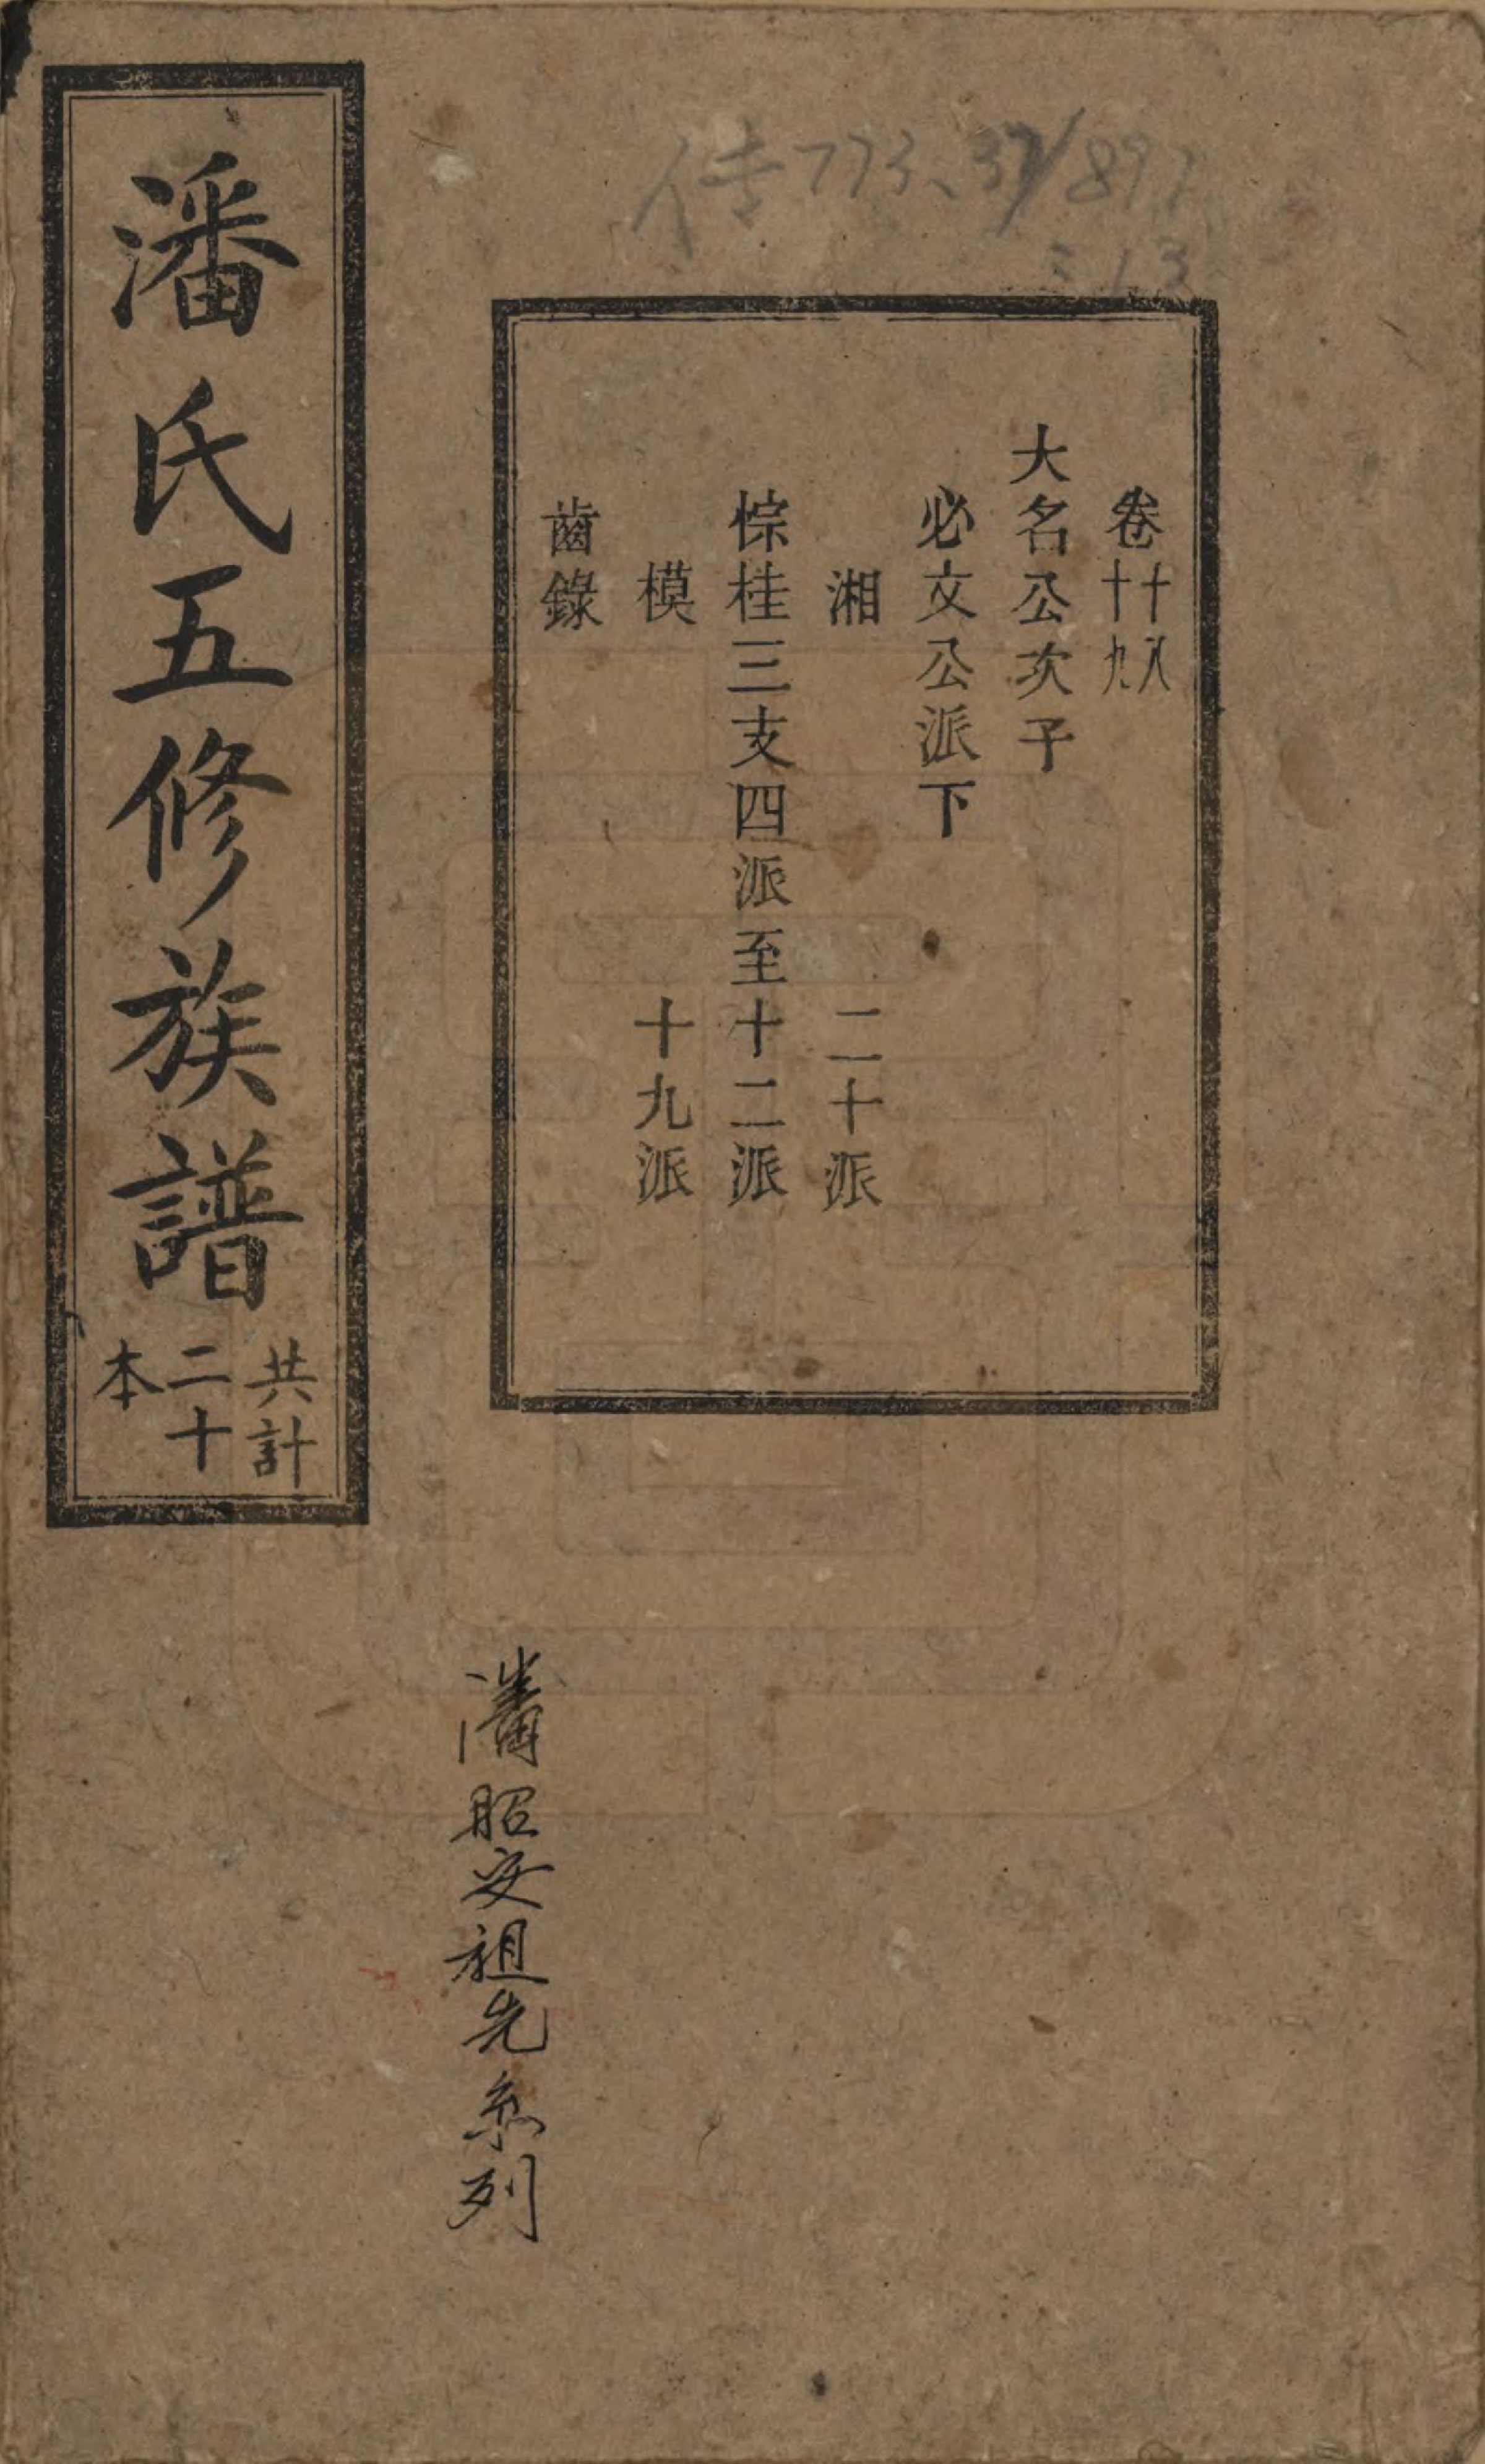 传773.37/897
:13
卷十八十九
大名公次子
必文公派下
湘 二十派
悰桂三支四派至十二派
模 十九派
齒錄
潘氏五修族譜
共計
二十
本
潘昭安祖先系列